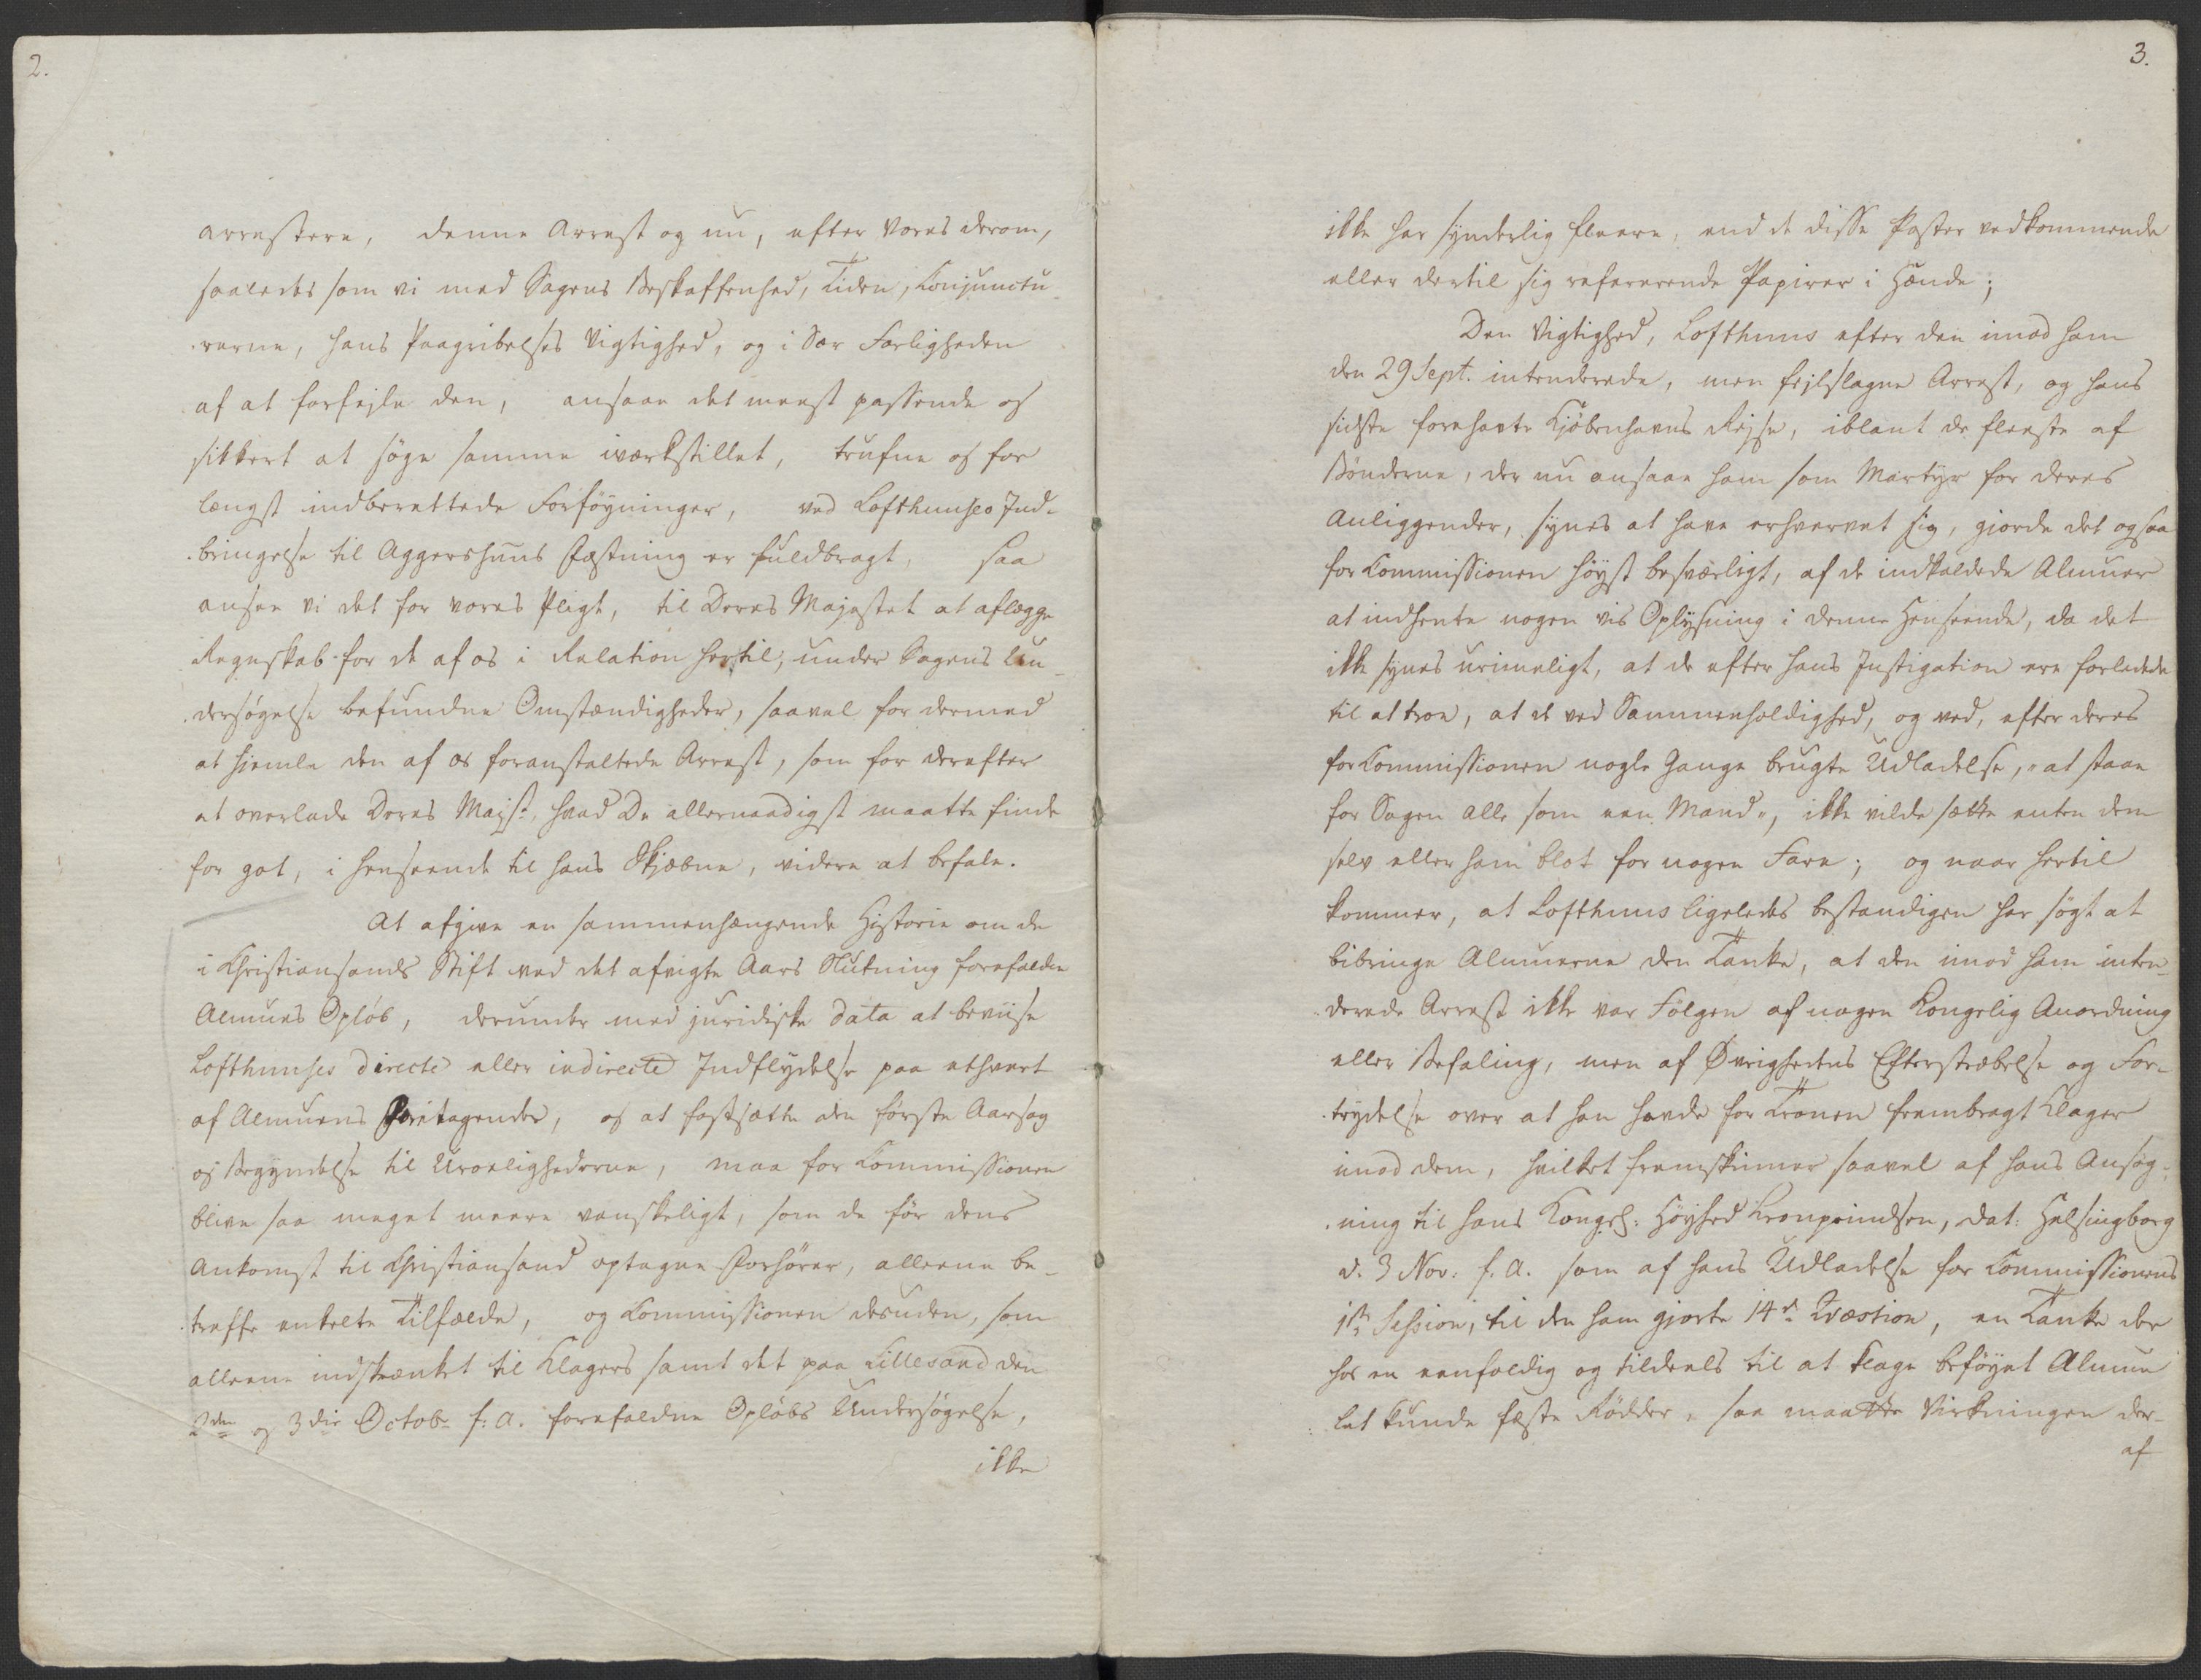 2.
arrestere, denne Arrest og nu, efter vores derom,
saaledes som vi med Sagens Beskaffenhed, Tiden, Conjunctu-
rerne, hans Paagribelses Vigtighed, og i Sær Farligheden
af at forfejle den, ansaae det meest passende og
sikkert at søge samme iværkstillet, trufne og for
længst indberettede Forføyninger, ved Lofthuuses Ind-
bringelse til Aggershuus Fæstning er fuldbragt, saa
ansee vi det for vores Pligt, til Deres Majestet at aflægge
Regnskab for de af os i Relation hertil, under Sagens Un-
dersøgelse befundne Omstændigheder, saavel for dermed
at hiemle den af os foranstaltede Arrest, som for derefter
at overlade Deres Majst. hvad De allernaadigst maatte finde
for got, i henseende til hans Skjæbne, videre at befale.
At afgive en sammenhængende Historie om de
i Christiansands Stift ved det afvigte Aars Slutning forefaldne
Almues Opløb, derunder med juridiske data at beviise
Lofthuuses directe eller indirecte Indflydelse paa ethvert
af Almuens Foretagender, og at fastsætte den første Aarsag
og Begyndelse til Uroelighederne, maa for Commissionen
blive saa meget meere vanskeligt, som de før dens
Ankomst til Christiansand optagne Forhører, alleene be-
treffe enkelte Tilfælde, og Commissionen desuden, som
alleene indskrænket til Klagers samt det paa Lillesand den
2den og 3die Octob. f: A. forefaldne Opløbs Undersøgelse,
ikke
3.
ikke har synderlig fleere, end de disse Poster vedkommende
eller dertil sig refererende Papirer i Hænde;
Den Vigtighed, Lofthuus efter den imod ham
den 29 Sept. intenderede, men fejlslagne Arrest, og hans
sidste forehavte Kjøbenhavns Rejse, iblant de fleeste af
Bønderne, der nu ansaae ham som Martyr for deres
Anliggender, synes at have erhvervet sig, gjorde det ogsaa
for Commissionen høyst besværligt, af de indkaldede Almuer
at indhente nogen vis Oplysning i denne Henseende, da det
ikke synes urimeligt, at de efter hans Instigation ere forledede
til at troe, at de ved Sammenholdighed, og ved, efter deres
for Commissionen nogle Gange brugte Udladelse, "at staae
for Sagen alle som een Mand", ikke vilde sætte enten dem
selv eller ham blot for nogen Fare; og naar hertil
kommer, at Lofthuus ligeledes bestandigen har søgt at
bibringe Almuerne den Tanke, at den imod ham inten-
derede Arrest ikke var Følgen af nogen Kongelig Anordning
eller Befaling, men af Øvrighedens Efterstræbelse og For-
trydelse over at han havde for Tronen frembragt Klager
imod dem, hvilket fremskinner saavel af hans Ansøg-
ning til hans Kongel: Høyhed Kronprindsen, dat: Helsingborg
d. 3 Nov: f. A. som af hans Udladelse for Commissionens
1ste Session, til den ham gjorte 14de Qvæstion, en Tanke der
hos en eenfoldig og tildeels til at klage beføyet Almue
let kunde fæste Rødder, saa maatte Virkningen der-
af